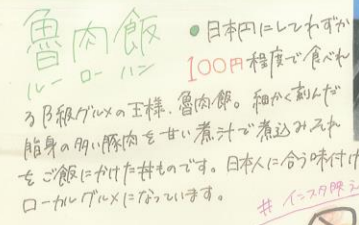 魯肉飯
ルーローハン
●日本円にしてわずか
100円程度で食べれ
るB級グルメの王様、魯肉飯。細かく刻んだ
脂身の多い豚肉を甘い煮汁で煮込みそれ
をご飯にかけた丼ものです。日本人に合う味付け
ローカルグルメになっています。
# インスタ映え